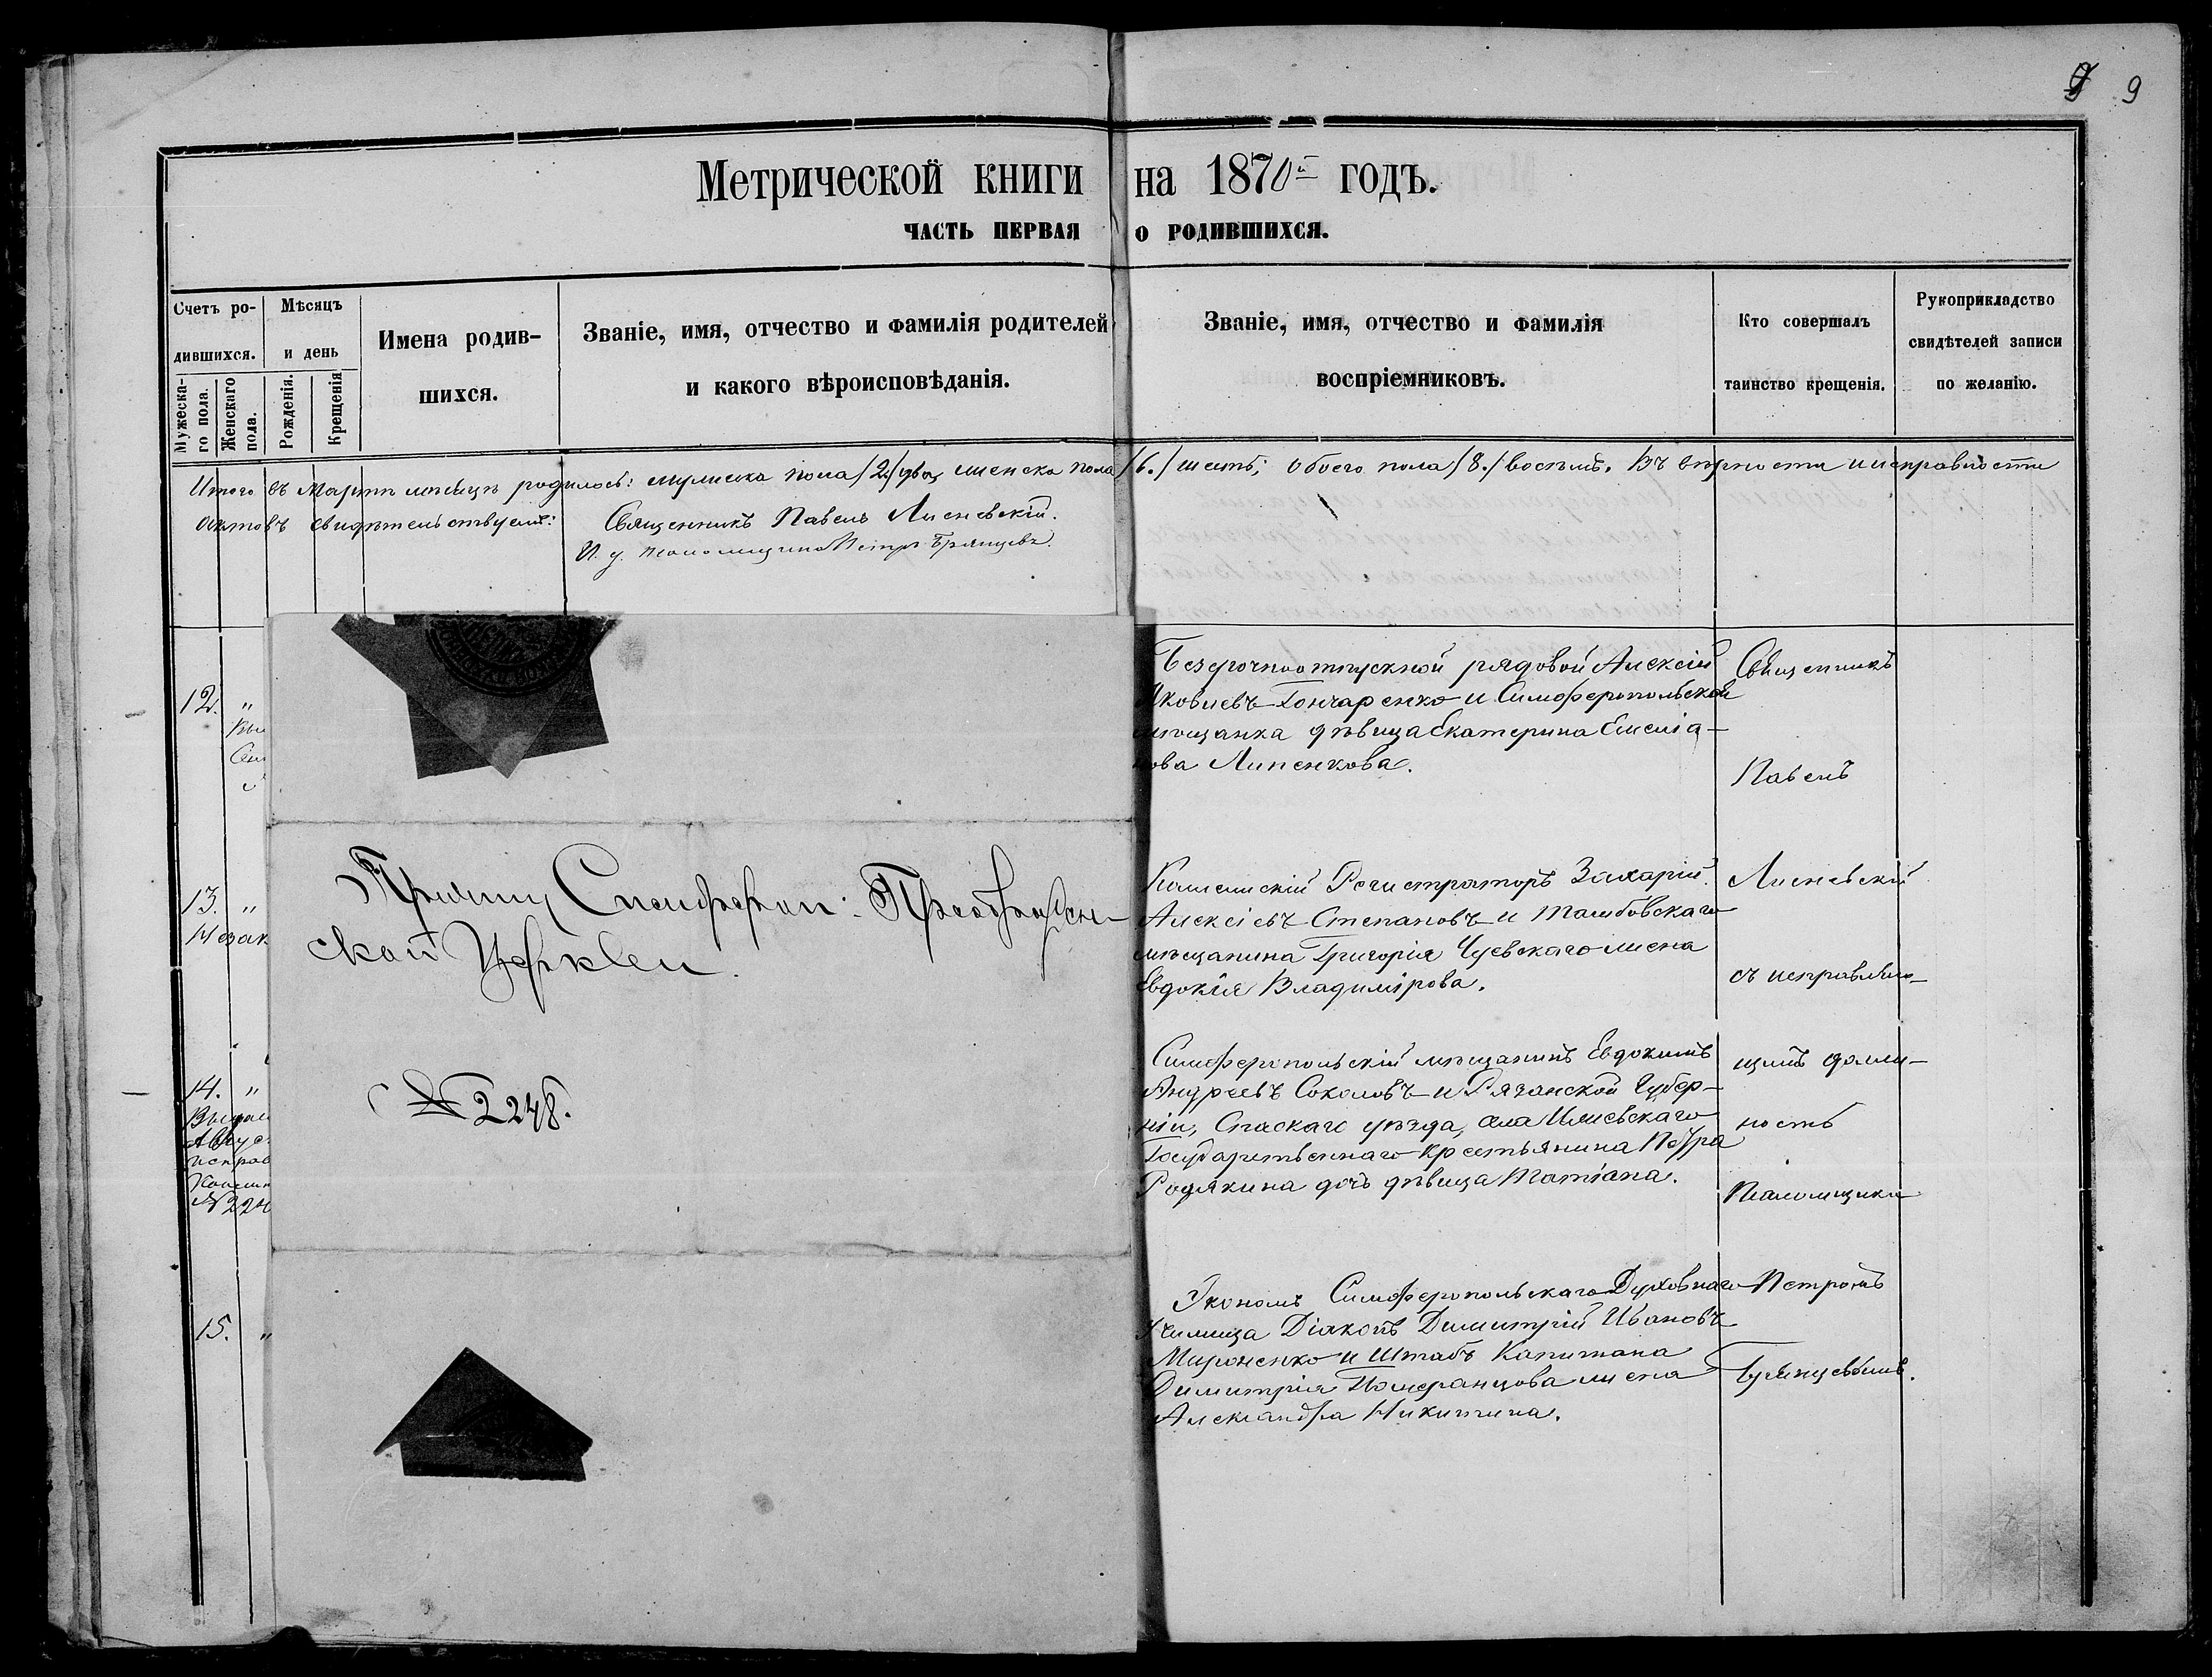 9 9
Метрической книги на 1870й годъ.
ЧАСТЬ ПЕРВАЯ О РОДИВШИХСЯ.
Счетъ ро-
дившихся.
Мужеска-
го пола.
Женскаго
пола.
Мѣсяцъ
и день
Рожденія.
Крещенія
Имена родив-
шихся.
Званіе, имя, отчество и фамилія родителей
и какого вѣроисповѣданія.
Званіе, имя, отчество и фамилія
воспріемниковъ.
Кто совершалъ
таинство крещенія.
Рукоприкладство
свидѣтелей записи
по желанію.
Итого въ Мартѣ мѣсяцѣ родилось: мужеска пола /2./ два, женска пола /6./ шесть; обоего пола /8./ восемь. Въ вѣрности и исправности
актовъ свидѣтельствуемъ: Священникъ Павелъ Лисневскій.
И. д. псаломщика Петръ Брянцевъ.
12. "
13. "
14. "
Август
исправ
№ 224
15. "
Причту Симфероп: Преображен-
ской Церкви.
№ 2248.
Безсрочноотпускной рядовой Алексій
Яковлевъ Гончаренко и Симферопольская
мѣщанка дѣвица Екатерина Емелiа-
нова Липенкова.
Коллежскій Регистраторъ Захарій
Алексіевъ Степановъ и Тамбовскаго
мѣщанина Григорія Чуевскаго жена
Евдокія Владимірова.
Симферопольскій мѣщанинъ Евдокимъ
Андреевъ Соколовъ и Рязанской Губер-
ніи, Спаскаго уѣзда, села Ижевскаго
Государственнаго крестьянина Петра
Родякина дочь дѣвица Татіана.
Экономъ Симферопольскаго Духовнаго
Училища Діаконъ Димитрій Ивановъ
Мироненко и Штабъ Капитана
Димитрія Померанцова жена
Александра Никитина.
Священникъ
Павелъ
Лисневскій
съ исправляю-
щимъ долж-
ность
Псаломщика
Петромъ
Брянцевымъ.